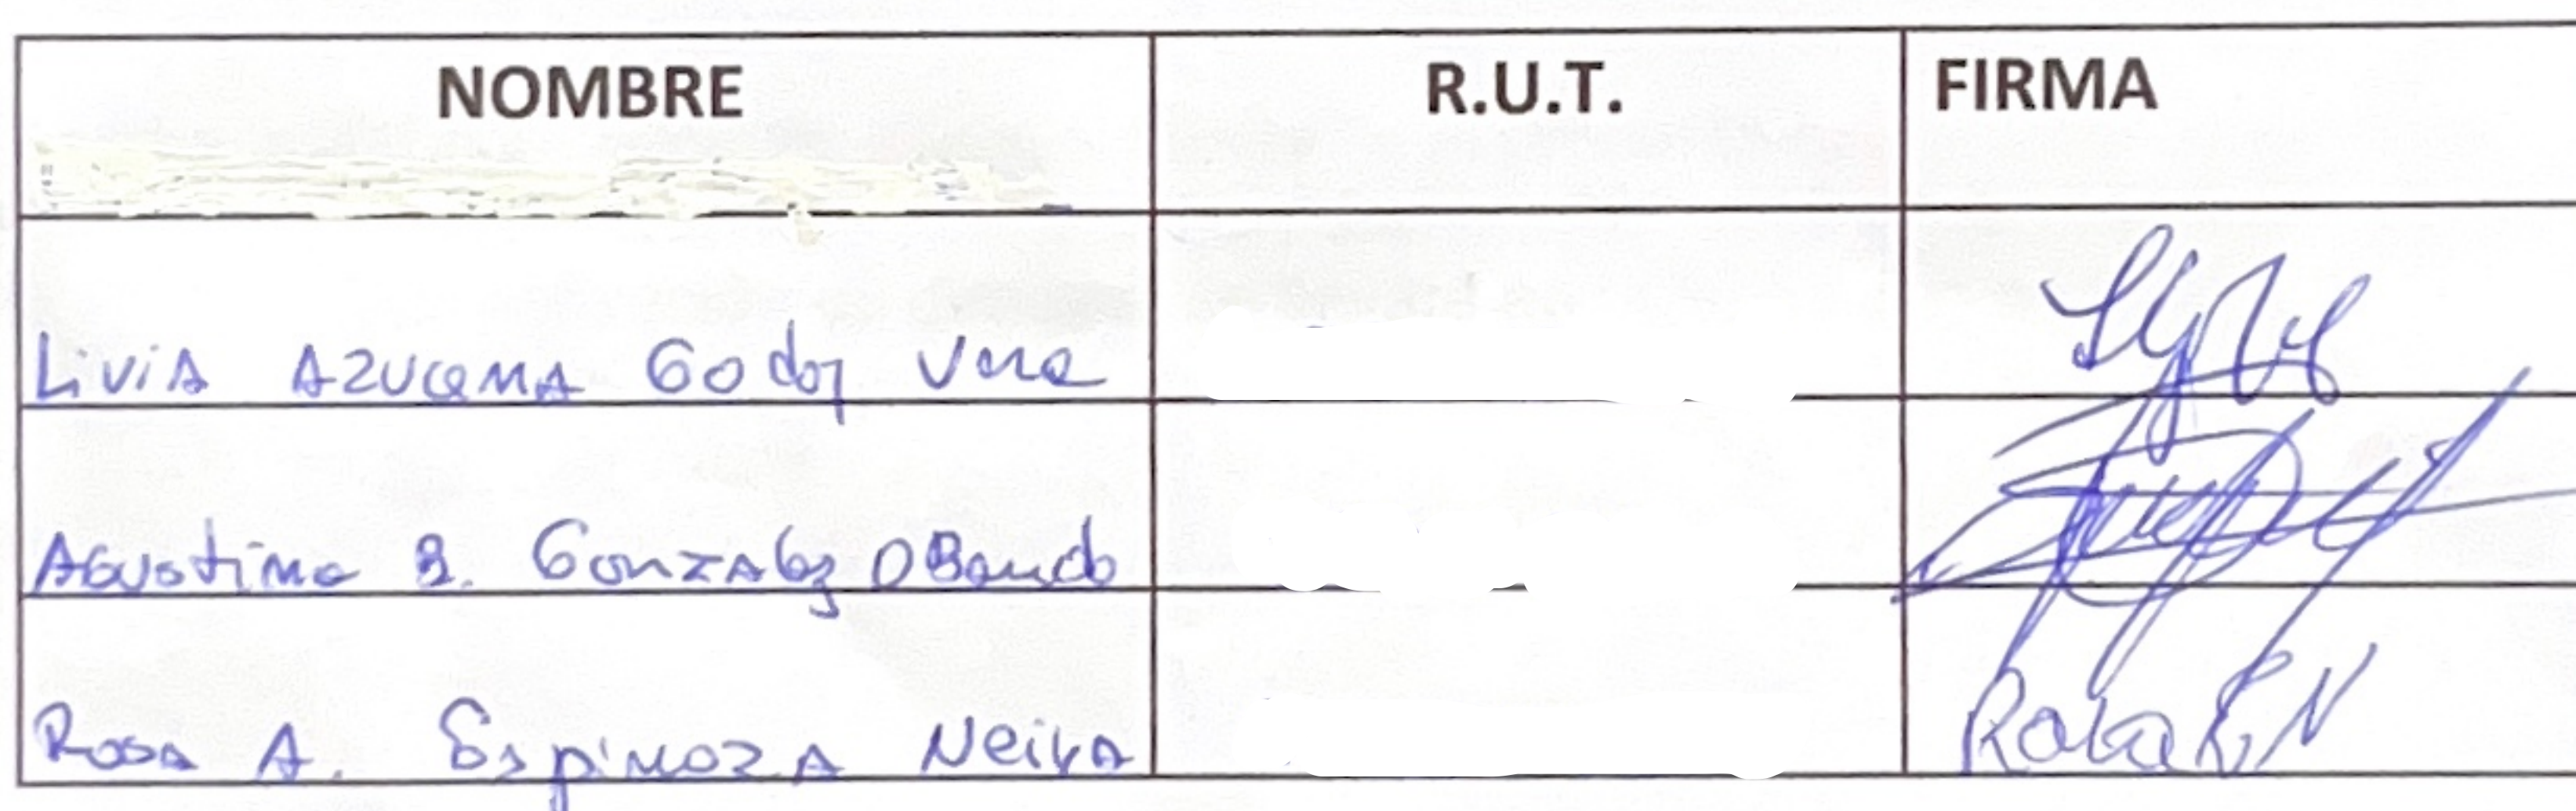 NOMBRE R.U.T. FIRMA
Livia Azucena Godoy Vera
Agustina B. Gonzalez Obando
Rosa A. Espinoza Neira
Rosa E. N